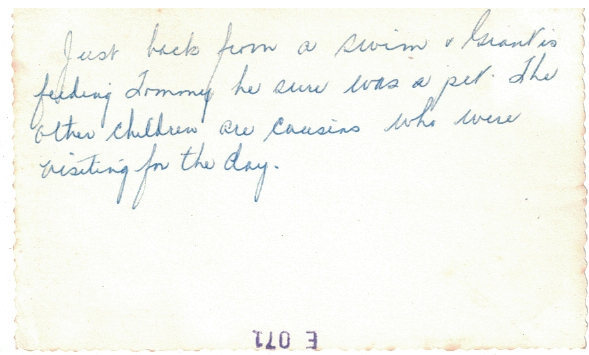 Just back from a swim & Grant is
feeding Tommy he sure was a pet. The
other children are cousins who were
visiting for the day.
E 071